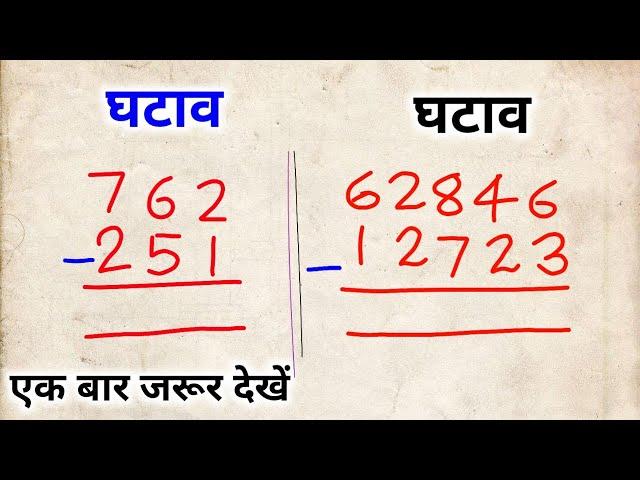 घटाव
762
-251
घटाव
62846
-12723
एक बार जरूर देखें